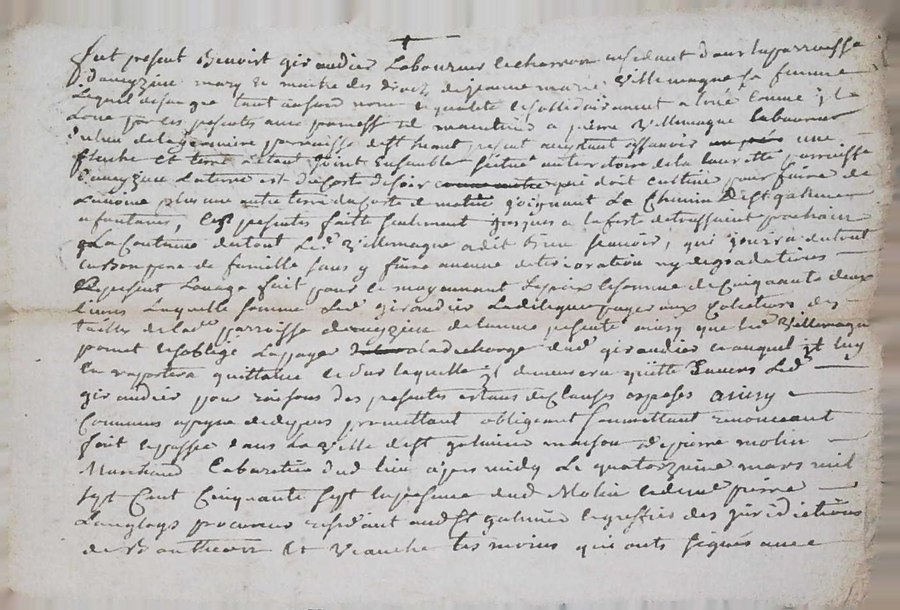 fut present Benoist giraudier Laboureur et charron residant dans la parroisse
d'aveyzieu mary et maitre des droits de jeanne marie Villemagne sa femme
Lequel de son gré tant a son nom et qualité et sollidairement a loué comme il
Loue par les presentes avec promesse de maintenir a pierre Villemagne laboureur
du lieu de la parroisse de St present acceptant assavoir une
et terre a tout joint ensemble situé au terroire de la parroisse
d'aveyzieu La terre est qui doit cultiver pour faire de
L'avoine plus une autre terre joignant Le Chemin de St galmier
a fontanes, Les presentes faite seulement jusques a la feste de toussaint prochain
La Contenue du tout Led. Villemagne a dit bien scavoir, qui jouira du tout
en bon pere de famille sans y faire aucune deterioration ny degradations
Le present Louage fait pour et moyennant Le prix et somme de Cinquante deux
livres Laquelle somme Led. giraudier Le delegue payer aux Collecteurs des
tailles de lad. parroisse d'aveyzieu de l'année presente ainsy que led. Villemagne
promet et s'oblige La payer a la decharge dud. giraudier et auquel il luy
en raportera quittance et sur laquelle il demeurera quitte Envers Led.
girandier pour raisons des presentes et sans de Clauses expresses ainsy
Convenus a peyne de depens promettant obligeant soumettant renonceant
fait et passé dans La Ville de St galmier maison de pierre molin
Marchand Cabaretier dud. lieu apres midy Le quatorzieme mars mil
sept Cent Cinquante sept en presence dud. Molin et de me pierre
Langloys procureur residant aud. St galmier et greffier des jurisdictions
de Boutheon et Veauche tesmoins qui onts signés avec